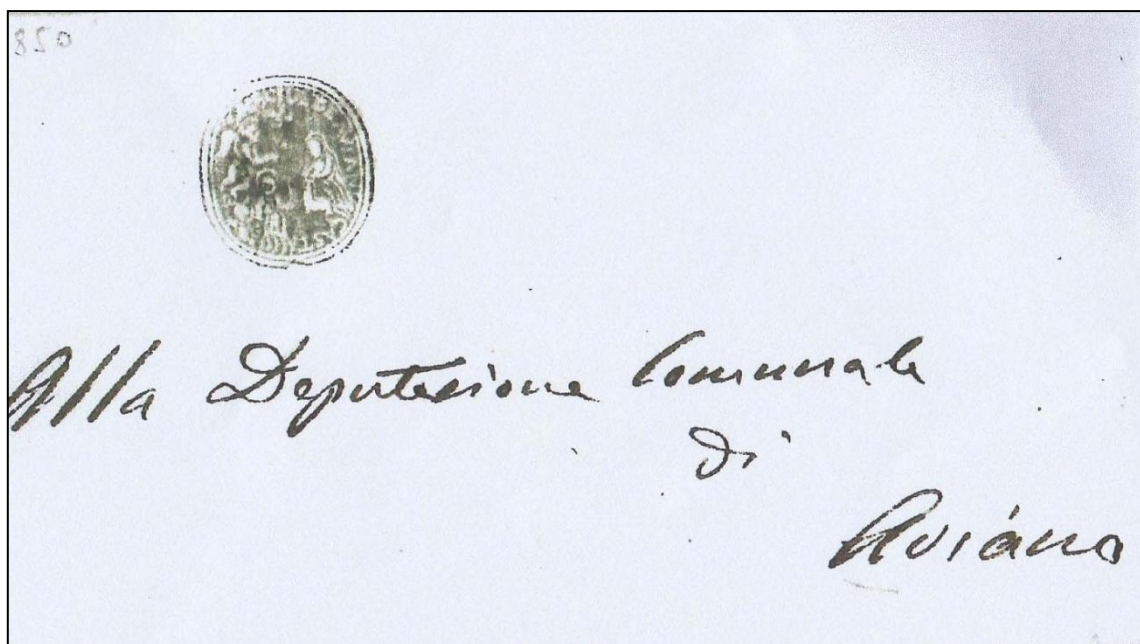 850
Alla Deputazione Comunale
di
Aviano